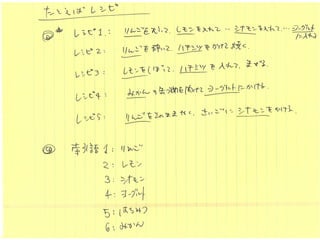 たとえばレシピ
レシピ1: りんごを 、レモンを入れて… シナモンを入れて… ヨーグルトに入れる
レシピ2: りんごを 焼いて ハチミツをかけて焼く.
レシピ3: レモンをしぼって、ハチミツを入れて、まぜる
レシピ4: みかんの をむけて ヨーグルトにかける.
レシピ5: りんごを 、さいごに シナモンをかける.
1: りんご
2: レモン
3: シナモン
4: ヨーグルト
5: はちみつ
6: みかん